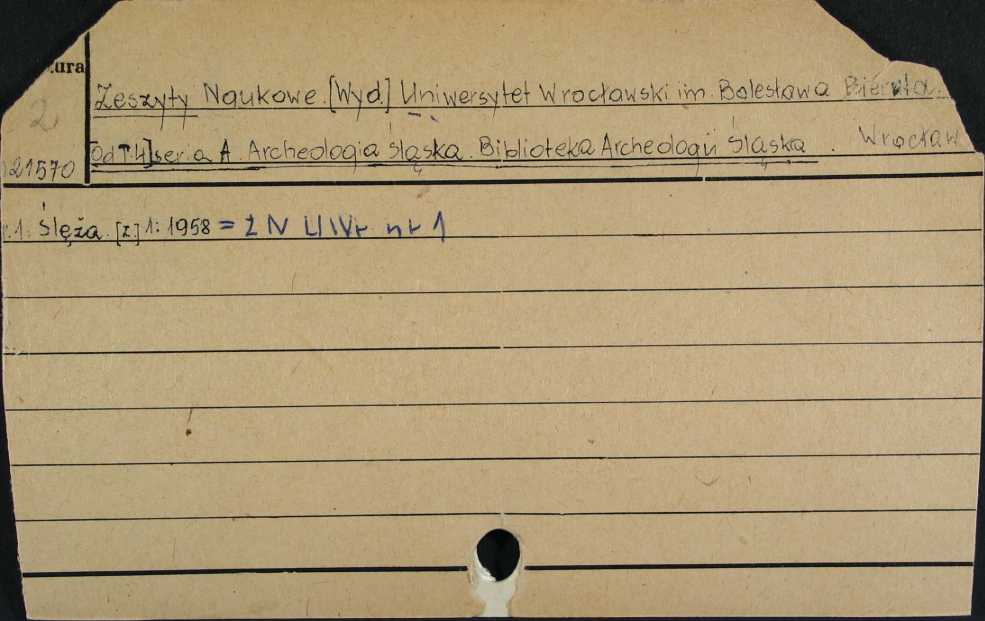 ura
2
Zeszyty Naukowe. [Wyd.] Uniwersytet Wrocławski im. Bolesława Bieruta.
[Od T. 4] seria A. Archeologia Śląska. Biblioteka Archeologii Śląska. Wrocław
21570
1. Ślęża. [z] 1: 1958 = ZN UWr nr 1